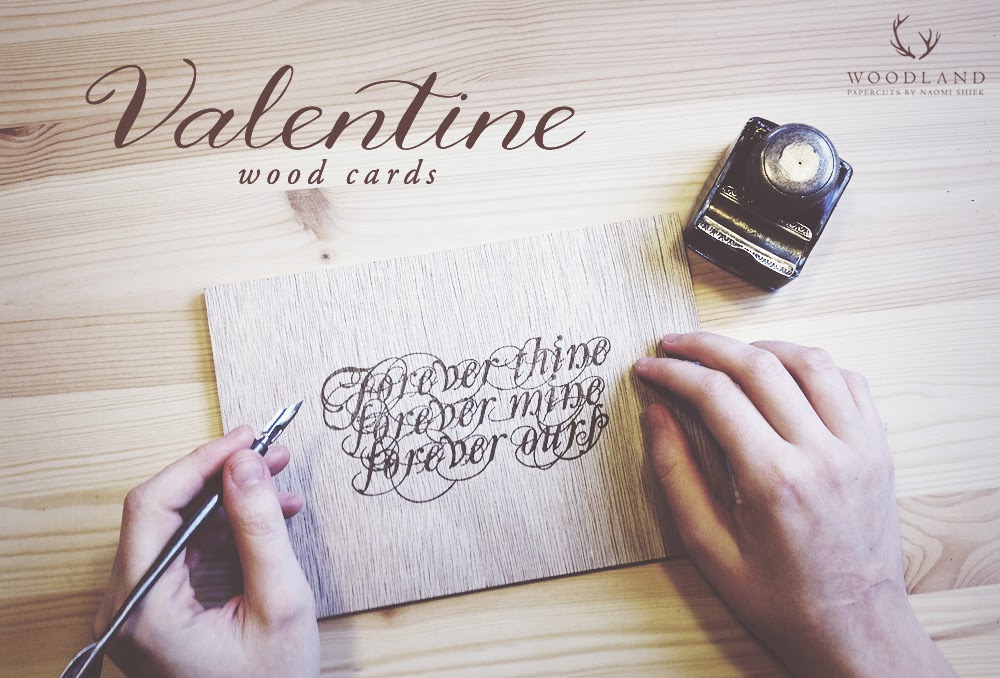 Valentine
wood cards
WOODLAND
PAPERCUTS BY NAOMI SHIEK
Forever thine
forever mine
forever ours